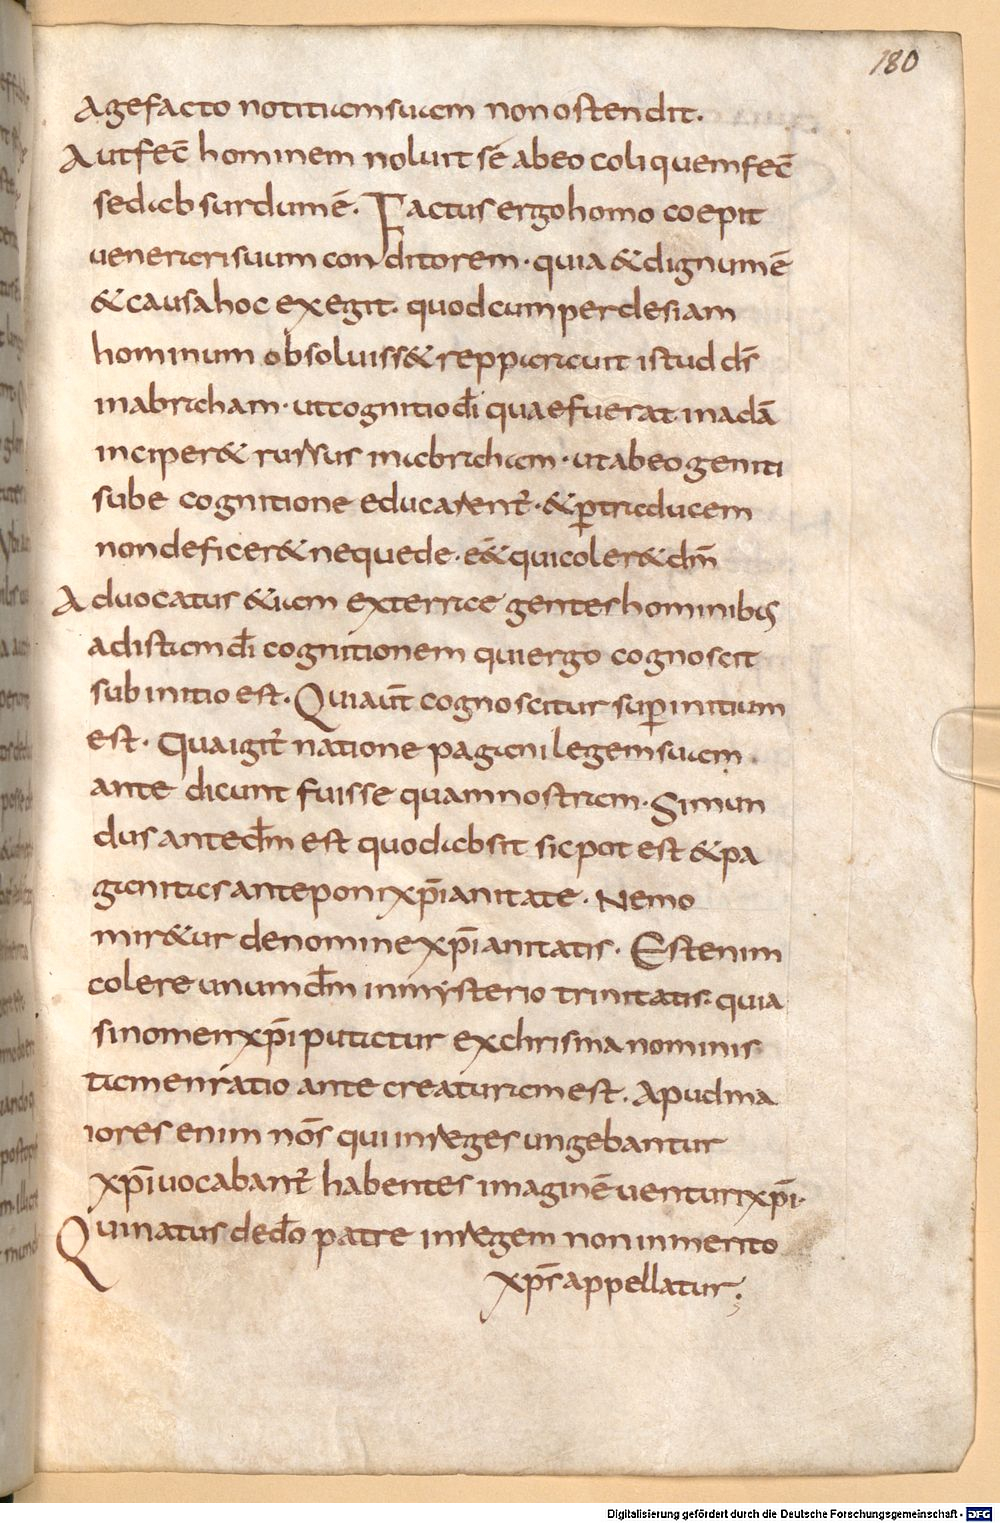 180
Agefacto notitiam suam non ostendit.
Aut fec̄ hominem noluit se ab eo coli quem fec̄
sed absurdum ē. Factus ergo homo coepit
uenerari suum conditorem. quia & dignum ē
& causa hoc exegit. quod cum per desiam
hominum obsoluiss& repparauit istud d̄s
in abraham. ut cognitio d̄i quae fuerat in adā
inciper& rursus in abraham. ut ab eo geniti
sub e cognitione educarent̄. & p̱ traducem
non deficer& neque de. e& qui coler& d̄m
Aduocatus &iam exterrae gentes hominibus
adistam d̄i cognitionem qui ergo cognoscit
sub initio est. Quiaut̄ cognoscitur sup̱ initium
est. Qua igit̄ natione pagani legem suam
ante dicunt fuisse quam nostram. Si mun
dus ante d̄m est quod absit sic pot est & pa
ganitas anteponi xp̄ianitate. Nemo
mir&ur de nomine xp̄ianitatis. Est enim
colere unum d̄m in mysterio trinitatis. quia
si nomen xp̄i putatur ex chrisma nominis
tamen ratio ante creaturam est. Apud ma
iores enim nōs qui in reges ungebantur
xp̄i uocabant̄ habentes imaginē uenturi xp̄i.
Qui natus de d̄o patre in regem non inmerito
xp̄s appellatur;
Digitalisierung gefördert durch die Deutsche Forschungsgemeinschaft - DFG